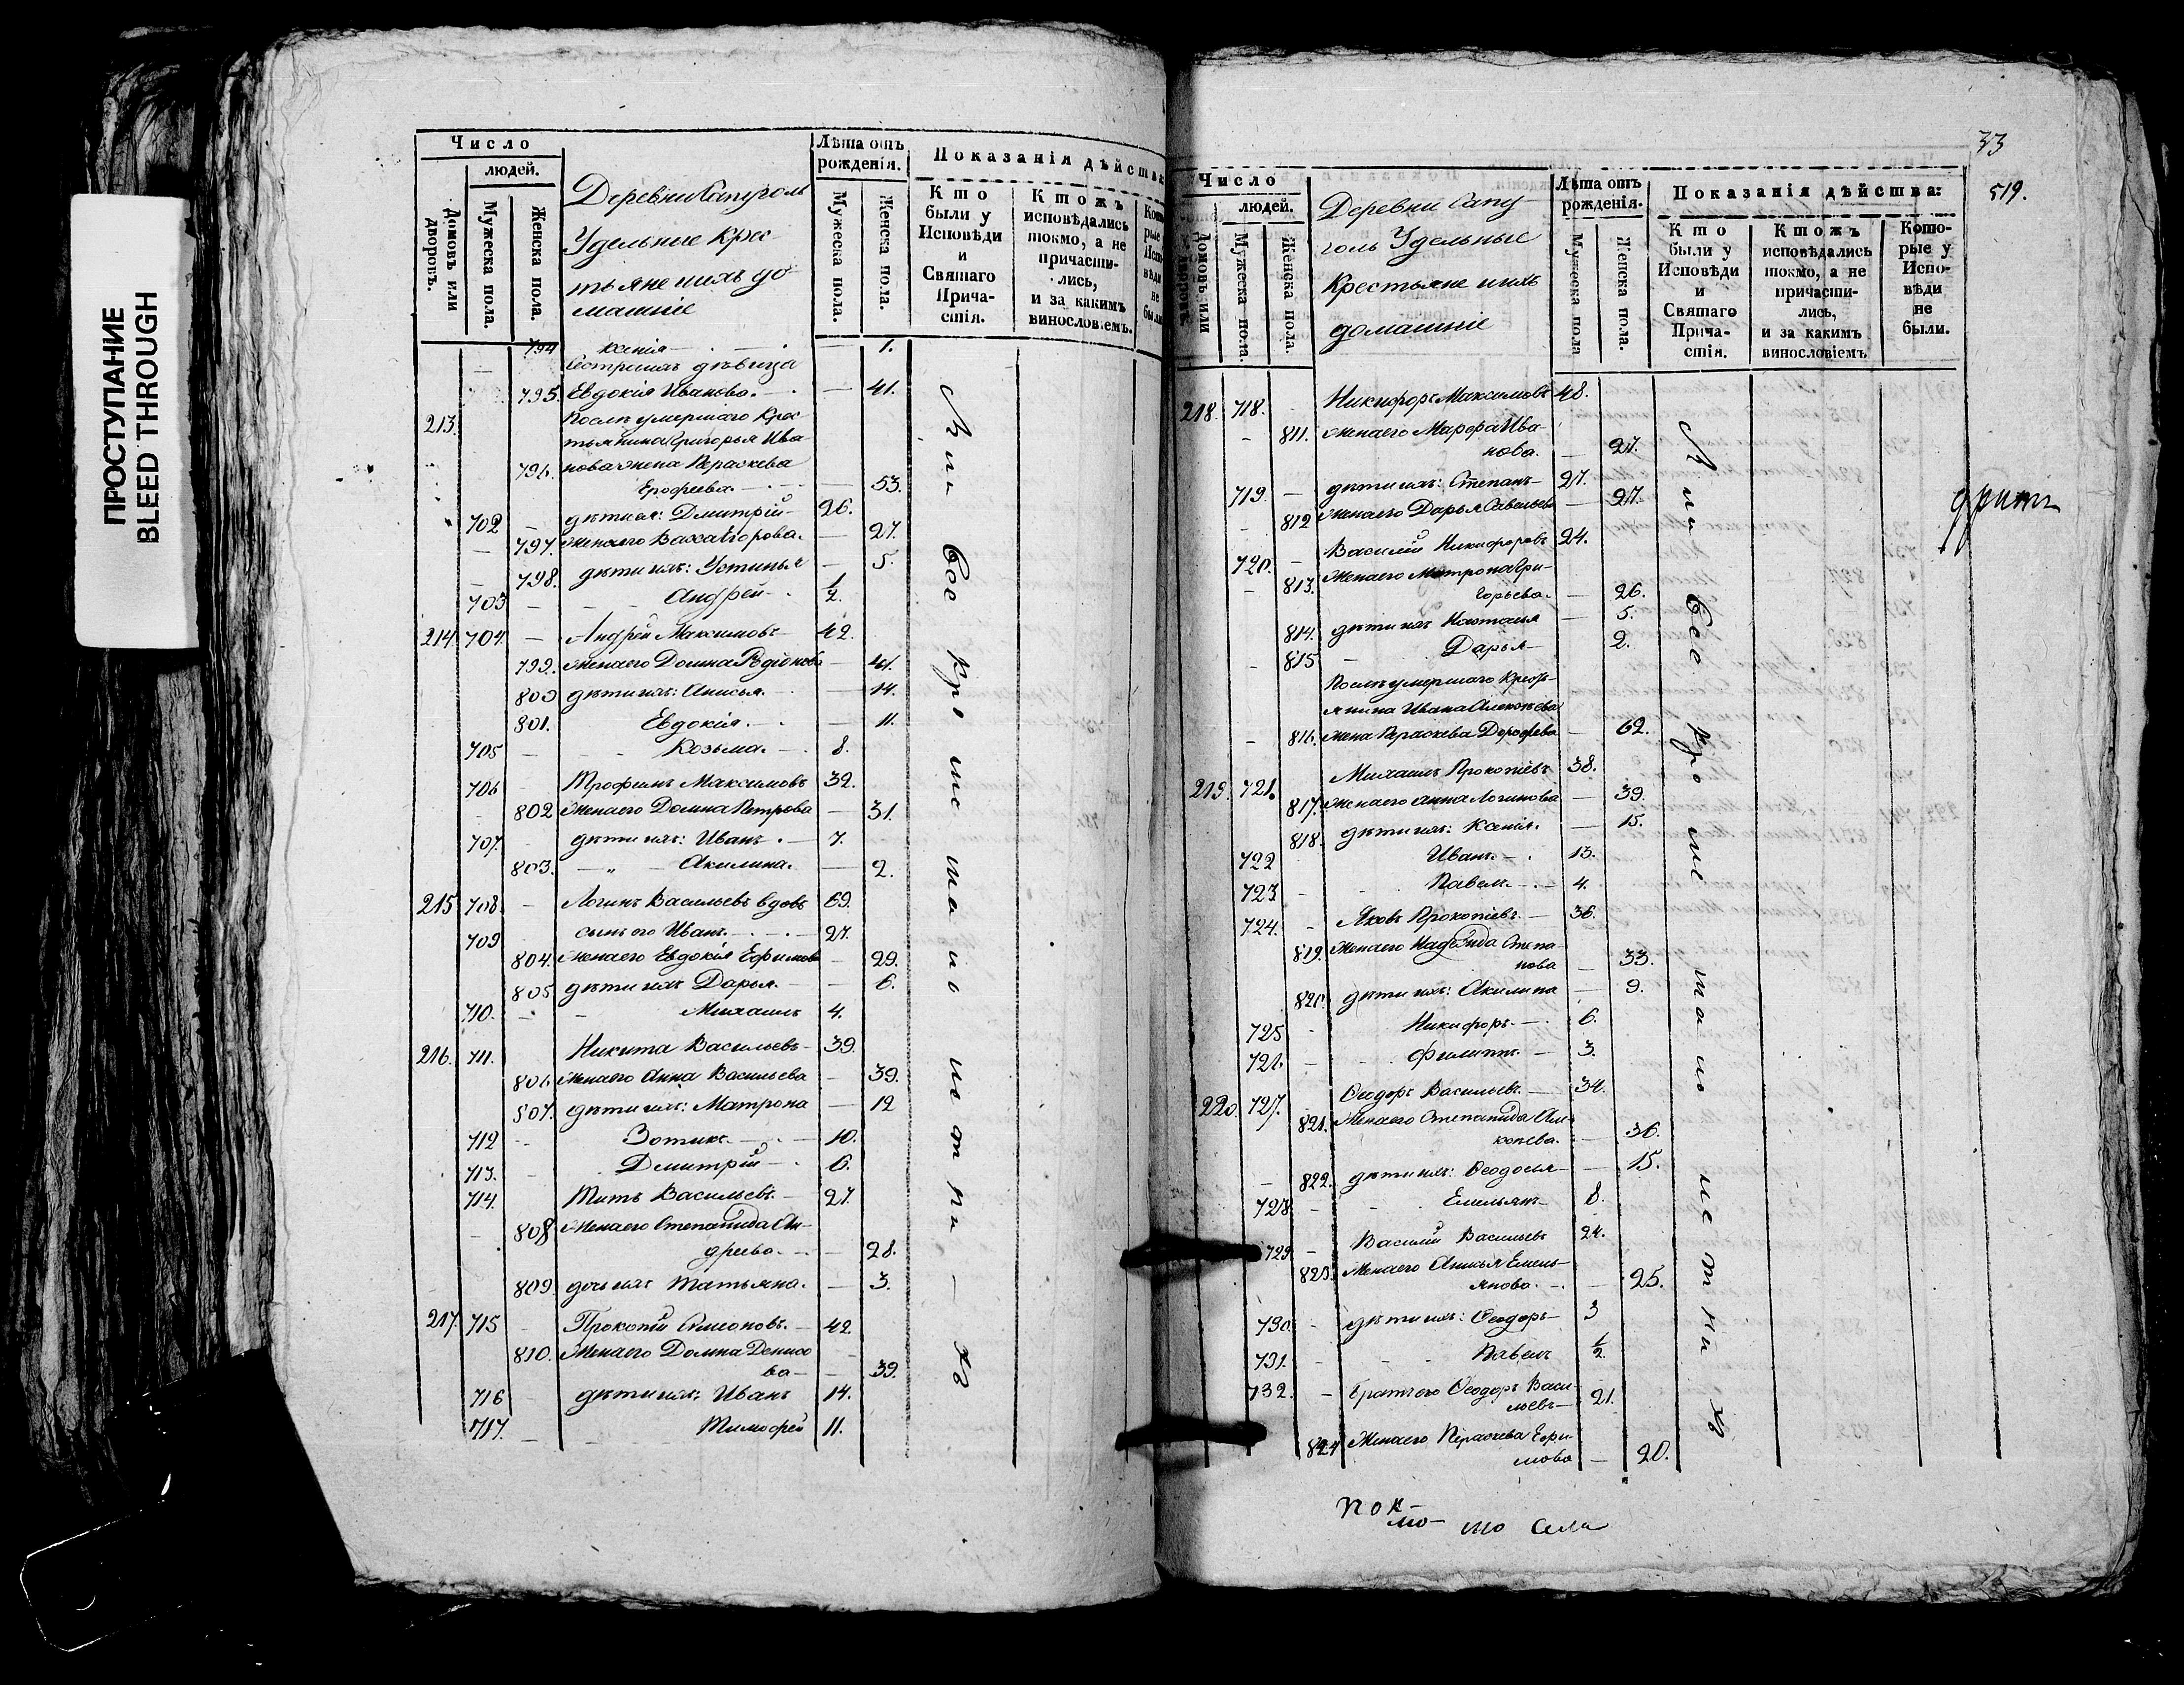 ПРОСТУПАНИЕ
BLEED THROUGH
Число
людей.
Домовъ или дворовъ.
Мужеска пола.
Женска пола.
Деревни Сапуголь
Удельные Крес-
тьяне ихъ до-
машніе
Лѣта отъ рожденія.
Мужеска пола.
Женска пола.
Показанія дѣйства
Кто были у Исповѣди и Святаго Прича-стія.
Ктожъ исповѣдались токмо, а не причасти-лись, и за какимъ винословіемъ.
794 Ксенія — 1.
Сестра ихъ дѣвица
795. Евдокія Иванова. — 41.
213. Послѣ умершаго Крес-
тьянина Григорья Ива-
796. нова жена Параскева
Ерофеева. — 53.
702 — дѣти ея: Дмитрій — 26.
797. жена его Васса Егорова. — 27.
798. дѣти ихъ: Устинья — 5.
703 — Андрей — 1/2.
214. 704. — Андрей Максимовъ — 42.
799. жена его Домна Родіонова — 41.
800 дѣти ихъ: Анисья — 14.
801. Евдокія. — 11.
705 — Козьма. — 8.
706 Трофимъ Максимовъ 32.
802 жена его Домна Петрова — 31.
707. дѣти ихъ: Иванъ. — 7.
803. — " — Акилина. — 2.
215 708. — Логинъ Васильевъ вдовъ 69.
709 сынъ его Иванъ. — 27.
804. жена его Евдокія Ефимова — 29.
805 дѣти ихъ Дарья. — 6.
710. — Михаилъ 4.
216. 711. Никита Васильевъ — 39.
806 жена его Анна Васильева — 39.
807. дѣти ихъ: Матрона — 12
712 Зотикъ. — 10.
713. Дмитрій — 6.
714. Титъ Васильевъ. — 27.
808 жена его Степанида Ан-
дреева. — 28.
809. дочь ихъ Татьяна. — 3.
217. 715 Прокопій Симеоновъ. — 42.
810. жена его Домна Денисо
ва — 39.
716 дѣти ихъ Иванъ 14.
717. — Тимофей 11.
33
519.
Число
людей.
Домовъ или дворовъ.
Мужеска пола.
Женска пола.
Деревни Сапу-
голь Удельные
Крестьяне ихъ
домашніе
Лѣта отъ рожденія.
Мужеска пола
Женска пола.
Показанія дѣйства:
Кто были у Исповѣди и Святаго Прича-стія.
Ктожъ исповѣдались токмо, а не причасти-лись, и за какимъ винословіемъ
Кото-рые у Испо-вѣди не были.
218. 718. Никифоръ Максимовъ 48.
811. жена его Марфа Ива-
нова. — 27.
719. — дѣти ихъ: Степанъ — 27.
812 жена его Дарья Савельева — 27.
720. Василій Никифоровъ 24.
813. жена его Матрона Гри-
горьева. — 26.
814. дѣти ихъ Наталья — 5.
815 Дарья — 2.
Послѣ умершаго Кресть-
янина Ивана Алексѣева
816. жена Параскева Дорофеева 62.
219. 721. Михаилъ Прокопіевъ 38.
817. жена его Анна Логинова — 39.
818. дѣти ихъ: Ксенія. — 15.
722 Иванъ. — 13.
723 Павелъ. — 4.
724. — Яковъ Прокопіевъ. — 36.
819. жена его Надежда Степа
нова — 33.
820. дѣти ихъ: Акилина — 9.
725 Никифоръ. — 6.
726. Филиппъ. — 3.
220. 727. Ѳеодоръ Васильевъ. — 34.
821. жена его Степанида
— 36.
822. дѣти ихъ: Ѳеодосья — 15.
728 Емельянъ — 8.
729. Василій Васильевъ 24.
823. жена его Анисья Емель-
янова. — 25.
730. — дѣти ихъ: Ѳеодоръ — 3
731. Павелъ 1/2.
732. — братъ его Ѳеодоръ Васи-
льевъ — 21.
824 жена его Параскева Ефи-
мова — 20.
села